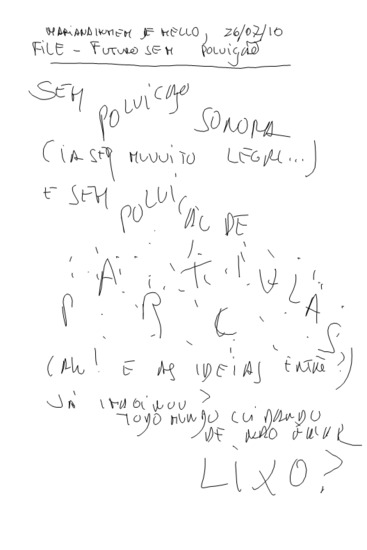 DE MELLO, 26/07/10
FILE - FUTURO SEM POLUIÇÃO
SEM
POLUICAO
SONORA
(IA SER MUUUITO LEGAL...)
E SEM
POLUICAO DE
PARTICULAS
(AH! E AS IDEIAS ENTRE?)
JÁ IMAGINOU?
TODO MUNDO CUIDANDO
DE NÃO
LIXO?